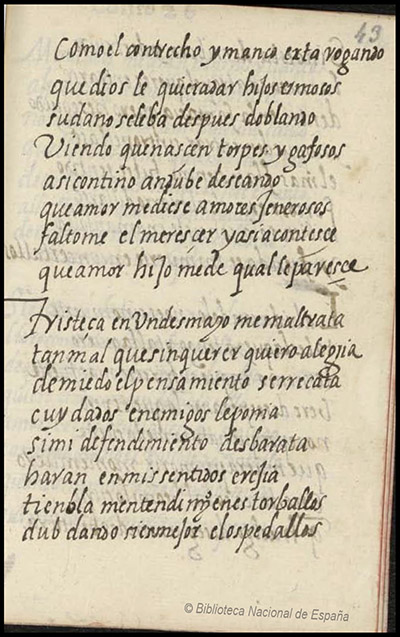 43
Como el contrecho y manco esta rogando
que dios le quiera dar hijos ermosos
su daño se le ba despues doblando
Viendo que nascen torpes y gafosos
asi contino andube deseando
que amor me diese amores jenerosos
faltome el merescer y asi acontesce
que amor hijo me de qual le paresce
Tristeca en Un desmayo me maltrata
tan mal que sin querer quiero alegria
de miedo el pensamiento se rrecata
cuydados enemigos le ponia
si mi defendimiento desbarata
haran en mis sentidos erejia
tienbla m entendim.
dubdando si es mejor
© Biblioteca Nacional de España